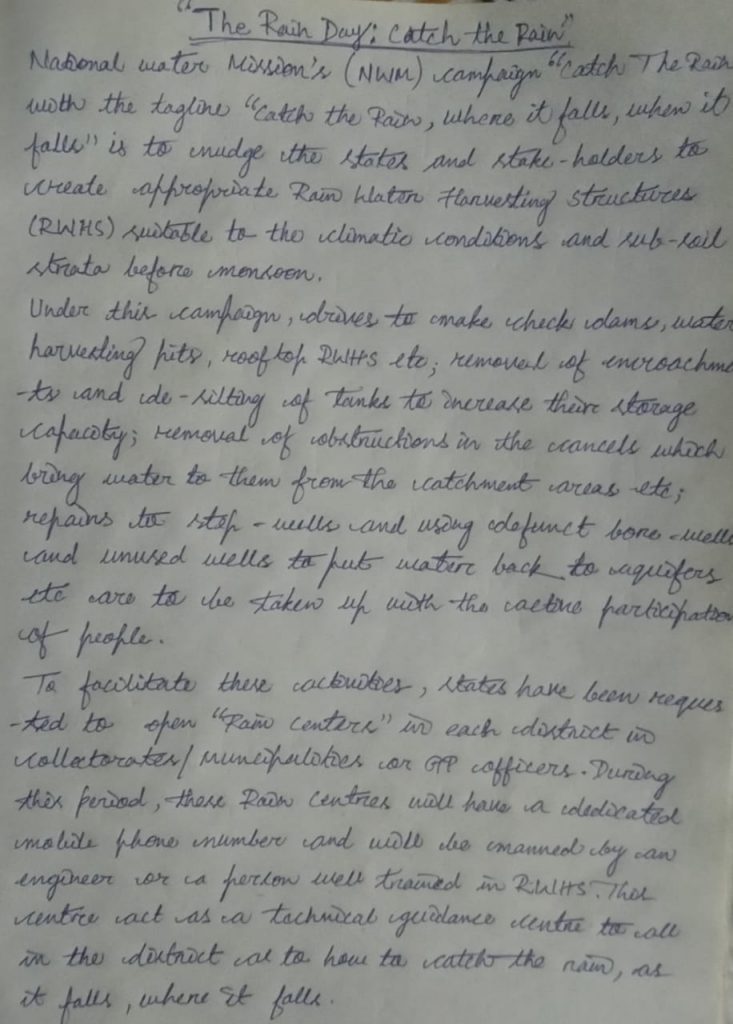 "The Rain Day: Catch the Rain"
National water Mission's (NWM) campaign "Catch The Rain
with the tagline "Catch the Rain, where it falls, when it
falls" is to nudge the states and stake-holders to
create appropriate Rain Water Harvesting structures
(RWHS) suitable to the climatic conditions and sub-soil
strata before monsoon.
Under this campaign, drives to make check dams, water
harvesting pits, rooftop RWHS etc; removal of encroachme
-ts and de-silting of tanks to increase their storage
capacity; removal of obstructions in the cancels which
bring water to them from the catchment areas etc;
repairs to step-wells and using defunct bore-wells
and unused wells to put water back to aquifers
etc are to be taken up with the active participation
of people.
To facilitate these activities, states have been reques
-ted to open "Rain centers" in each district in
collectorates/municipalities or GP officers. During
this period, these Rain Centres will have a dedicated
mobile phone number and will be manned by an
engineer or a person well trained in RWHS. This
centre act as a technical guidance centre to all
in the district as to how to catch the rain, as
it falls, where it falls.